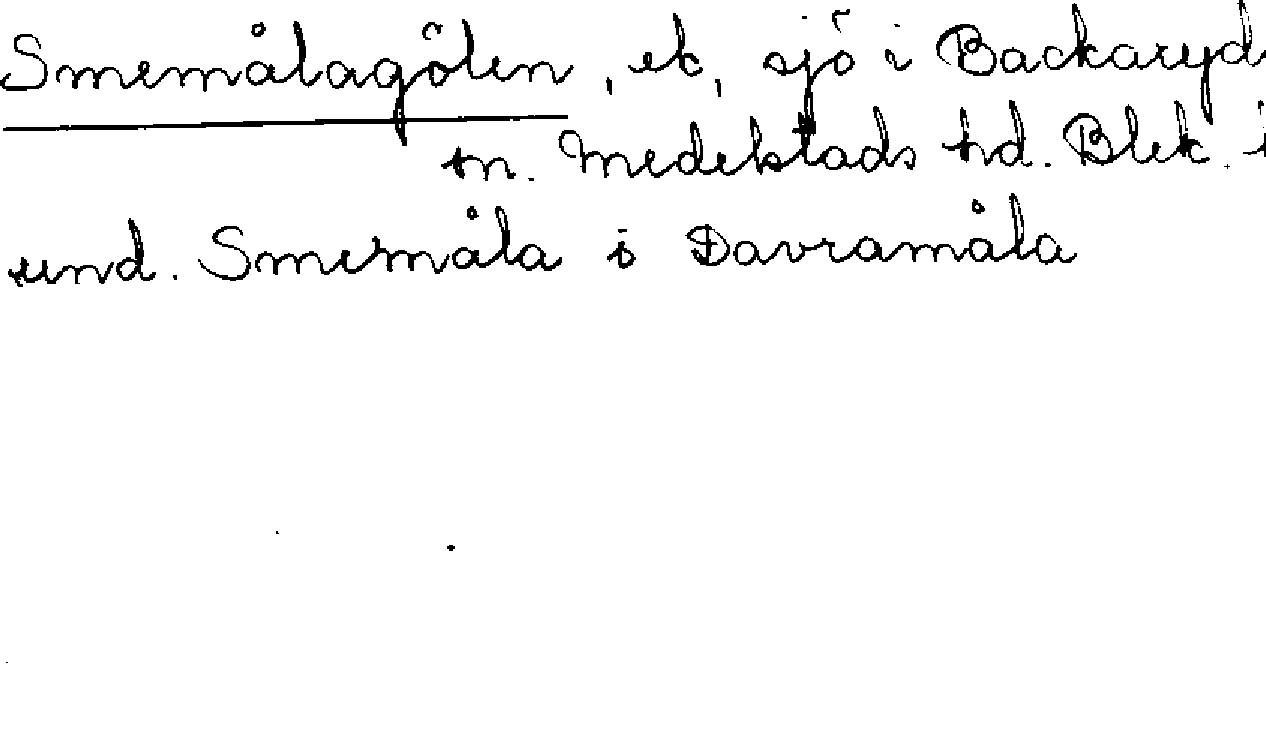 Smemålagölen, ek, sjö i Backaryds
sn. Medelstads hd. Blek. l
und. Smemåla o Davramåla